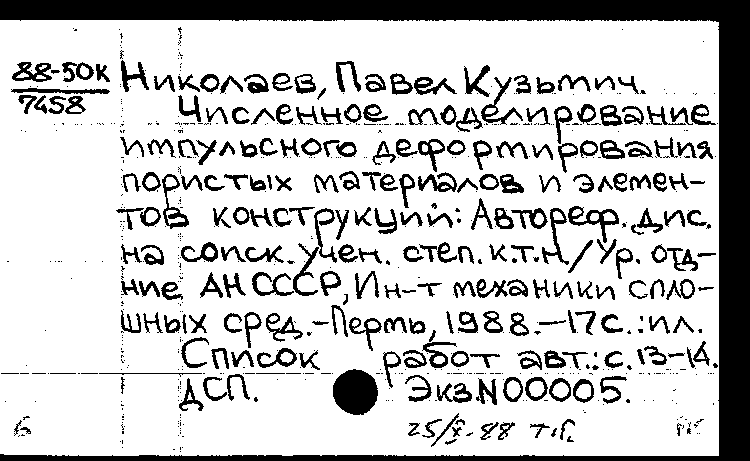 88-50К
7458
Николаев, Павел Кузьмич.
Численное моделирование
импульсного деформирования
пористых материалов и элемен-
тов конструкций: Автореф. дис.
на соиск. учен. степ. к.т.н./Ур. отд-
ние АН СССР, Ин-т механики спло-
шных сред.-Пермь, 1988.-17с.:ил.
Список работ авт.: с.13-14.
ДСП. Экз.N00005.
6 25/X-88